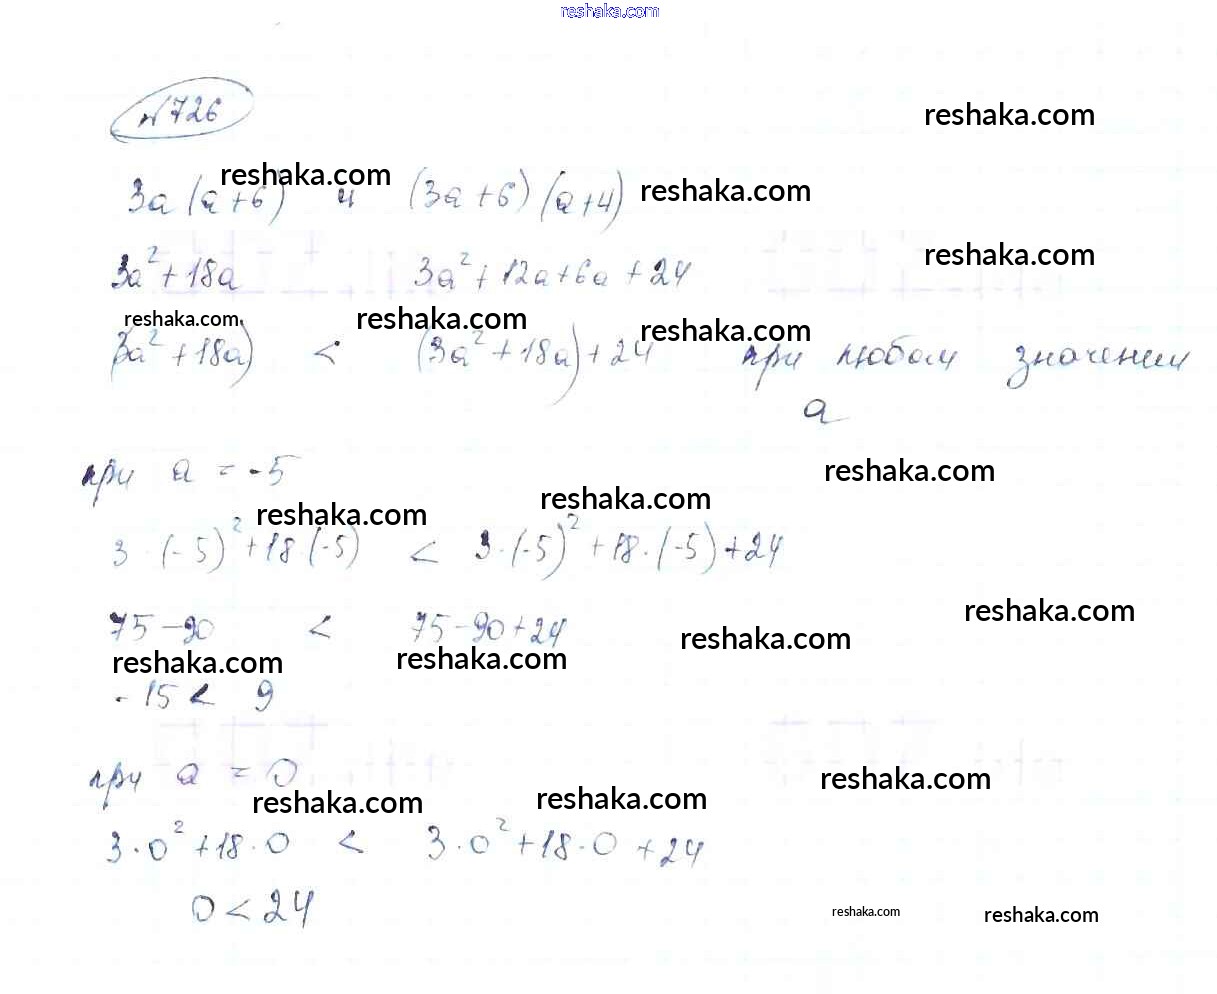 reshaka.com
№726
reshaka.com
reshaka.com
3a(a+6) и (3a+6)(a+4) reshaka.com
reshaka.com
3a²+18a 3a²+12a+6a+24
reshaka.com reshaka.com reshaka.com
(3a²+18a) < (3a²+18a)+24 при любом значении
a
при a = -5 reshaka.com
reshaka.com reshaka.com
3·(-5)²+18·(-5) < 3·(-5)²+18·(-5)+24
reshaka.com
75-90 < 75-90+24 reshaka.com
reshaka.com reshaka.com
-15 < 9
при a = 0 reshaka.com
reshaka.com reshaka.com
3·0²+18·0 < 3·0²+18·0+24
0<24 reshaka.com reshaka.com